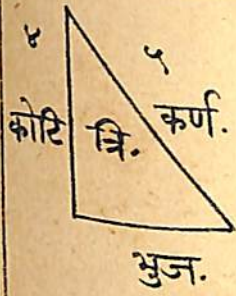 ४ ५
कोटि त्रि. कर्ण.
भुज.